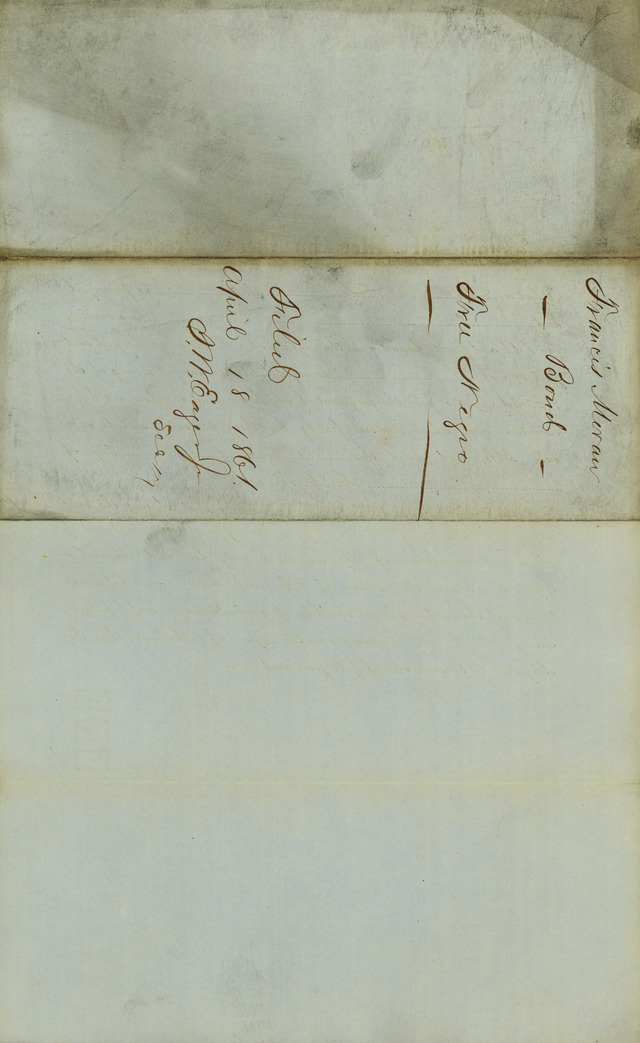 Francis Moran
— Bond —
Free Negro
Filed
April 18 1861.